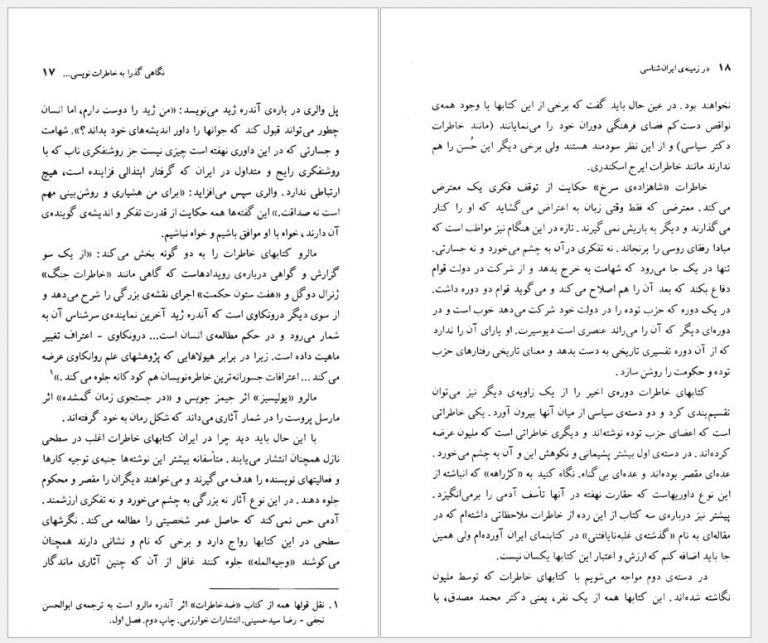 نگاهی گذرا به خاطرات نویسی... ۱۷
پل والری در باره‌ی آندره ژید می‌نویسد: «من ژید را دوست دارم، اما انسان
چطور می‌تواند قبول کند که جوانها را داور اندیشه‌های خود بداند؟». شهامت
و جسارتی که در این داوری نهفته است چیزی نیست جز روشنفکری ناب که با
روشنفکری رایج و متداول در ایران که گرفتار ابتذالی فزاینده است، هیچ
ارتباطی ندارد. والری سپس می‌افزاید: «برای من هشیاری و روشن‌بینی مهم
است نه صداقت.» این گفته‌ها همه حکایت از قدرت تفکر و اندیشه‌ی گوینده‌ی
آن دارند، خواه با او موافق باشیم و خواه نباشیم.
مالرو کتابهای خاطرات را به دو گونه بخش می‌کند: «از یک سو
گزارش و گواهی درباره‌ی رویدادهاست که گاهی مانند «خاطرات جنگ»
ژنرال دوگل و «هفت ستون حکمت» اجرای نقشه‌ی بزرگی را شرح می‌دهد و
از سوی دیگر درونکاوی است که آندره ژید آخرین نماینده‌ی سرشناس آن به
شمار می‌رود و در حکم مطالعه‌ی انسان است... درونکاوی - اعتراف تغییر
ماهیت داده است. زیرا در برابر هیولاهایی که پژوهشهای علم روانکاوی عرضه
می‌کند... اعترافات جسورانه‌ترین خاطره‌نویسان هم کودکانه جلوه می‌کند.»۱
مالرو «یولیسیز» اثر جیمز جویس و «در جستجوی زمان گمشده» اثر
مارسل پروست را در شمار آثاری می‌داند که شکل رمان به خود گرفته‌اند.
با این حال باید دید چرا در ایران کتابهای خاطرات اغلب در سطحی
نازل همچنان انتشار می‌یابند. متأسفانه بیشتر این نوشته‌ها جنبه‌ی توجیه کارها
و فعالیتهای نویسنده را هدف می‌گیرند و می‌خواهند دیگران را مقصر و محکوم
جلوه دهند. در این نوع آثار نه بزرگی به چشم می‌خورد و نه تفکری ارزشمند.
آدمی حس نمی‌کند که حاصل عمر شخصیتی را مطالعه می‌کند. نگرشهای
سطحی در این کتابها رواج دارد و برخی که نام و نشانی دارند همچنان
می‌کوشند «وجیه‌المله» جلوه کنند غافل از آن که چنین آثاری ماندگار
۱. نقل قولها همه از کتاب «ضدخاطرات» اثر آندره مالرو است به ترجمه‌ی ابوالحسن
نجفی - رضا سیدحسینی. انتشارات خوارزمی. چاپ دوم. فصل اول.
۱۸ در زمینه‌ی ایران‌شناسی
نخواهند بود. در عین حال باید گفت که برخی از این کتابها با وجود همه‌ی
نواقص دست‌کم فضای فرهنگی دوران خود را می‌نمایانند (مانند خاطرات
دکتر سیاسی) و از این نظر سودمند هستند ولی برخی دیگر این حُسن را هم
ندارند مانند خاطرات ایرج اسکندری.
خاطرات «شاهزاده‌ی سرخ» حکایت از توقف فکری یک معترض
می‌کند. معترضی که فقط وقتی زبان به اعتراض می‌گشاید که او را کنار
می‌گذارند و دیگر به بازیش نمی‌گیرند. تازه در این هنگام نیز مواظب است که
مبادا رفقای روسی را برنجاند. نه تفکری در آن به چشم می‌خورد و نه جسارتی.
تنها در یک جا می‌رود که شهامت به خرج بدهد و از شرکت در دولت قوام
دفاع بکند که بعد آن را هم اصلاح می‌کند و می‌گوید قوام دو دوره داشت.
در یک دوره که حزب توده را در دولت خود شرکت می‌دهد خوب است و در
دوره‌ای دیگر که آن را می‌راند عنصری است دیوسیرت. او یارای آن را ندارد
که از آن دوره تفسیری تاریخی به دست بدهد و معنای تاریخی رفتارهای حزب
توده و حکومت را روشن سازد.
کتابهای خاطرات دوره‌ی اخیر را از یک زاویه‌ی دیگر نیز می‌توان
تقسیم‌بندی کرد و دو دسته‌ی سیاسی از میان آنها بیرون آورد. یکی خاطراتی
است که اعضای حزب توده نوشته‌اند و دیگری خاطراتی است که ملیون عرضه
کرده‌اند. در دسته‌ی اول بیشتر پشیمانی و نکوهش این و آن به چشم می‌خورد.
عده‌ای مقصر بوده‌اند و عده‌ای بی‌گناه. نگاه کنید به «کژراهه» که انباشته از
این نوع داوریهاست که حقارت نهفته در آنها تأسف آدمی را برمی‌انگیزد.
پیشتر نیز درباره‌ی سه کتاب از این رده از خاطرات ملاحظاتی داشته‌ام که در
مقاله‌ای به نام «گذشته‌ی غلبه‌نایافتنی» در کتابنمای ایران آورده‌ام ولی همین
جا باید اضافه کنم که ارزش و اعتبار این کتابها یکسان نیست.
در دسته‌ی دوم مواجه می‌شویم با کتابهای خاطرات که توسط ملیون
نگاشته شده‌اند. این کتابها همه از یک نفر، یعنی دکتر محمد مصدق، با